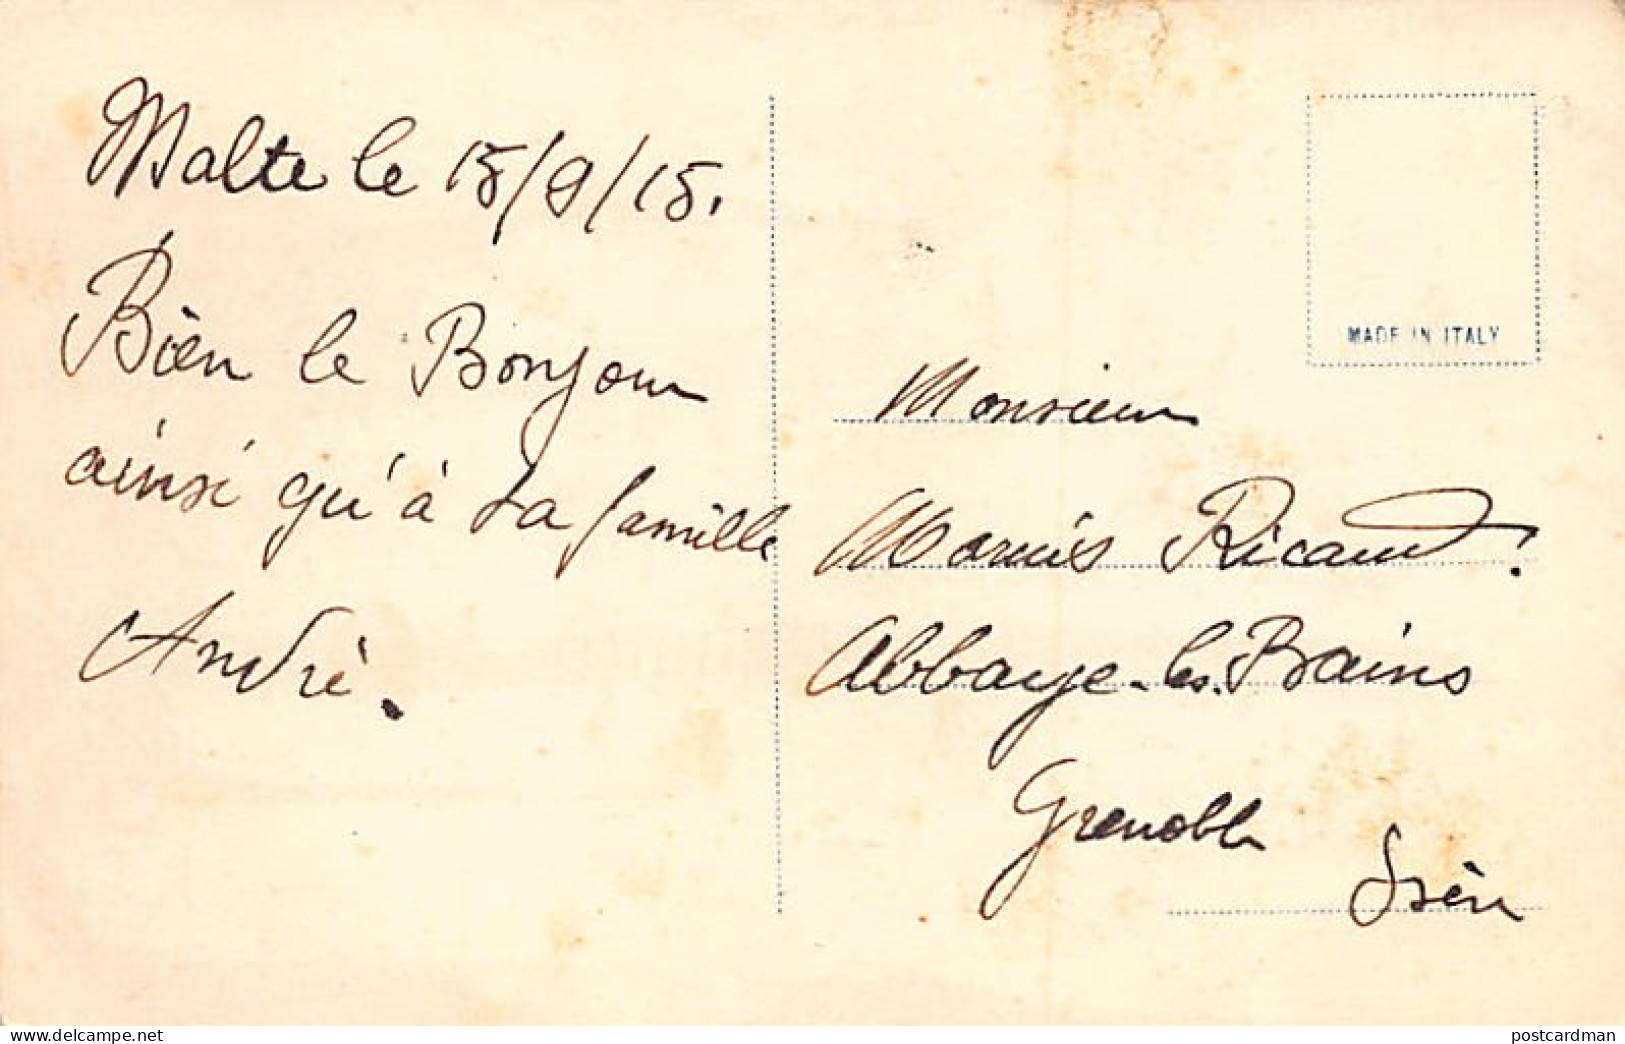 Malte le 15/9/15.
Bien le Bonjour
ainsi qu'à ta famille
André.
MADE IN ITALY
Monsieur
Marius Ricaud.
Abbaye-les-Bains
Grenoble
Isère
delcampe.net
postcardman